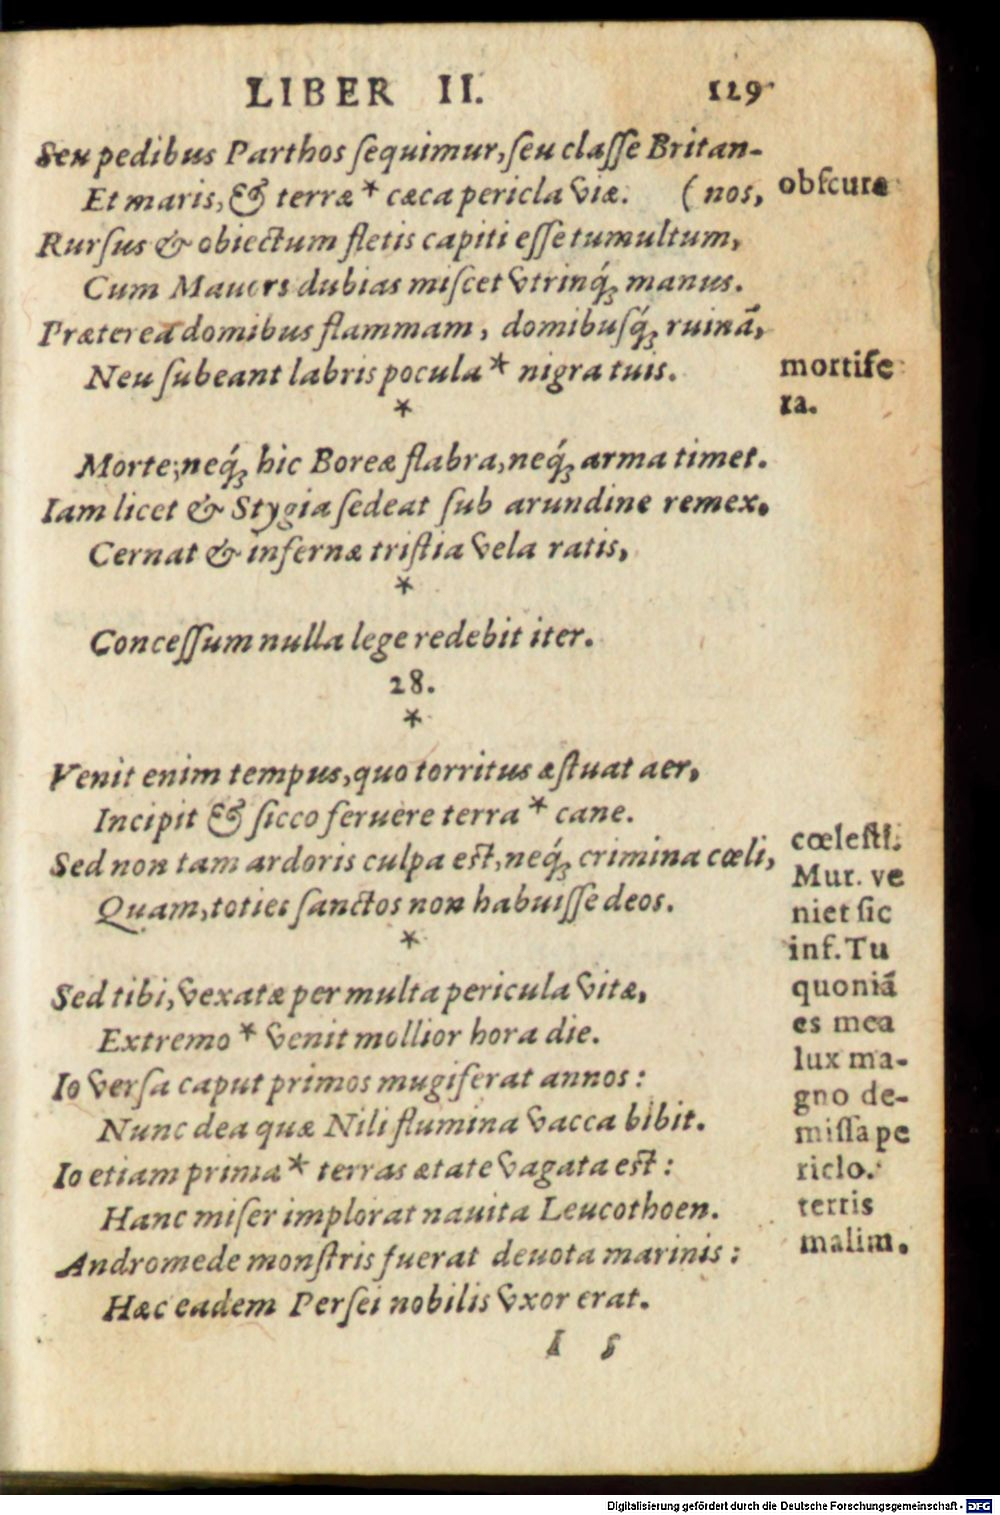 LIBER II. 129
Seu pedibus Parthos ſequimur, ſeu claſſe Britan-
Et maris, & terræ * cæca pericla viæ. (nos,
obſcura
Rurſus & obiectum fletis capiti eſſe tumultum,
Cum Mauors dubias miſcet vtrinq́; manus.
Præterea domibus flammam, domibuſq́; ruinã,
Neu ſubeant labris pocula * nigra tuis.
mortife
ra.
*
Morte; neq́; hic Boreæ flabra, neq́; arma timet.
Iam licet & Stygia ſedeat ſub arundine remex.
Cernat & infernæ triſtia vela ratis,
*
Conceſſum nulla lege redebit iter.
28.
*
Venit enim tempus, quo torritus æſtuat aer,
Incipit & ſicco feruere terra * cane.
Sed non tam ardoris culpa est, neq́; crimina cœli,
Quam, toties ſanctos non habuiſſe deos.
*
Sed tibi, vexatæ per multa pericula vitæ,
Extremo * venit mollior hora die.
Io verſa caput primos mugiſerat annos:
Nunc dea quæ Nili flumina vacca bibit.
Io etiam prima * terras ætate vagata est:
Hanc miſer implorat nauita Leucothoen.
Andromede monſtris fuerat deuota marinis:
Hæc eadem Perſei nobilis vxor erat.
cœleſti.
Mur. ve
niet ſic
inf. Tu
quoniã
es mea
lux ma-
gno de-
miſſa pe
riclo.
terris
malim.
I 5
Digitalisierung gefördert durch die Deutsche Forschungsgemeinschaft - DFG